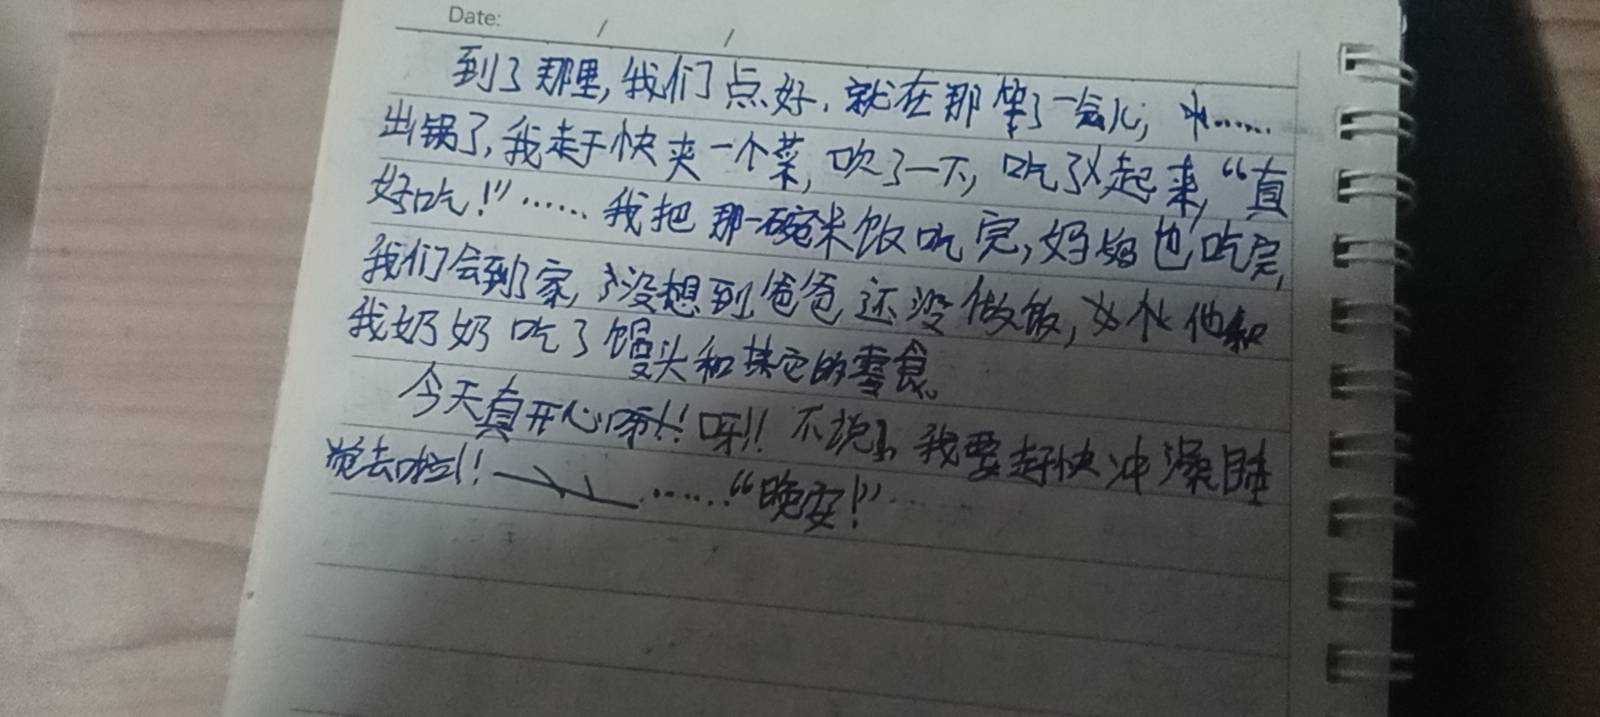 Date: / /
到了那里,我们点好,就在那等了一会儿,……
出锅了,我赶快夹一个菜,吹了一下,吃了起来,“真
好吃!”……我把那一碗米饭吃完,妈妈也吃完,
我们会到了家,没想到爸爸还没做饭,他和
我奶奶吃了馒头和其它的零食。
今天真开心呀!!呀!!不说了,我要赶快冲澡睡
觉去啦!……“晚安!”